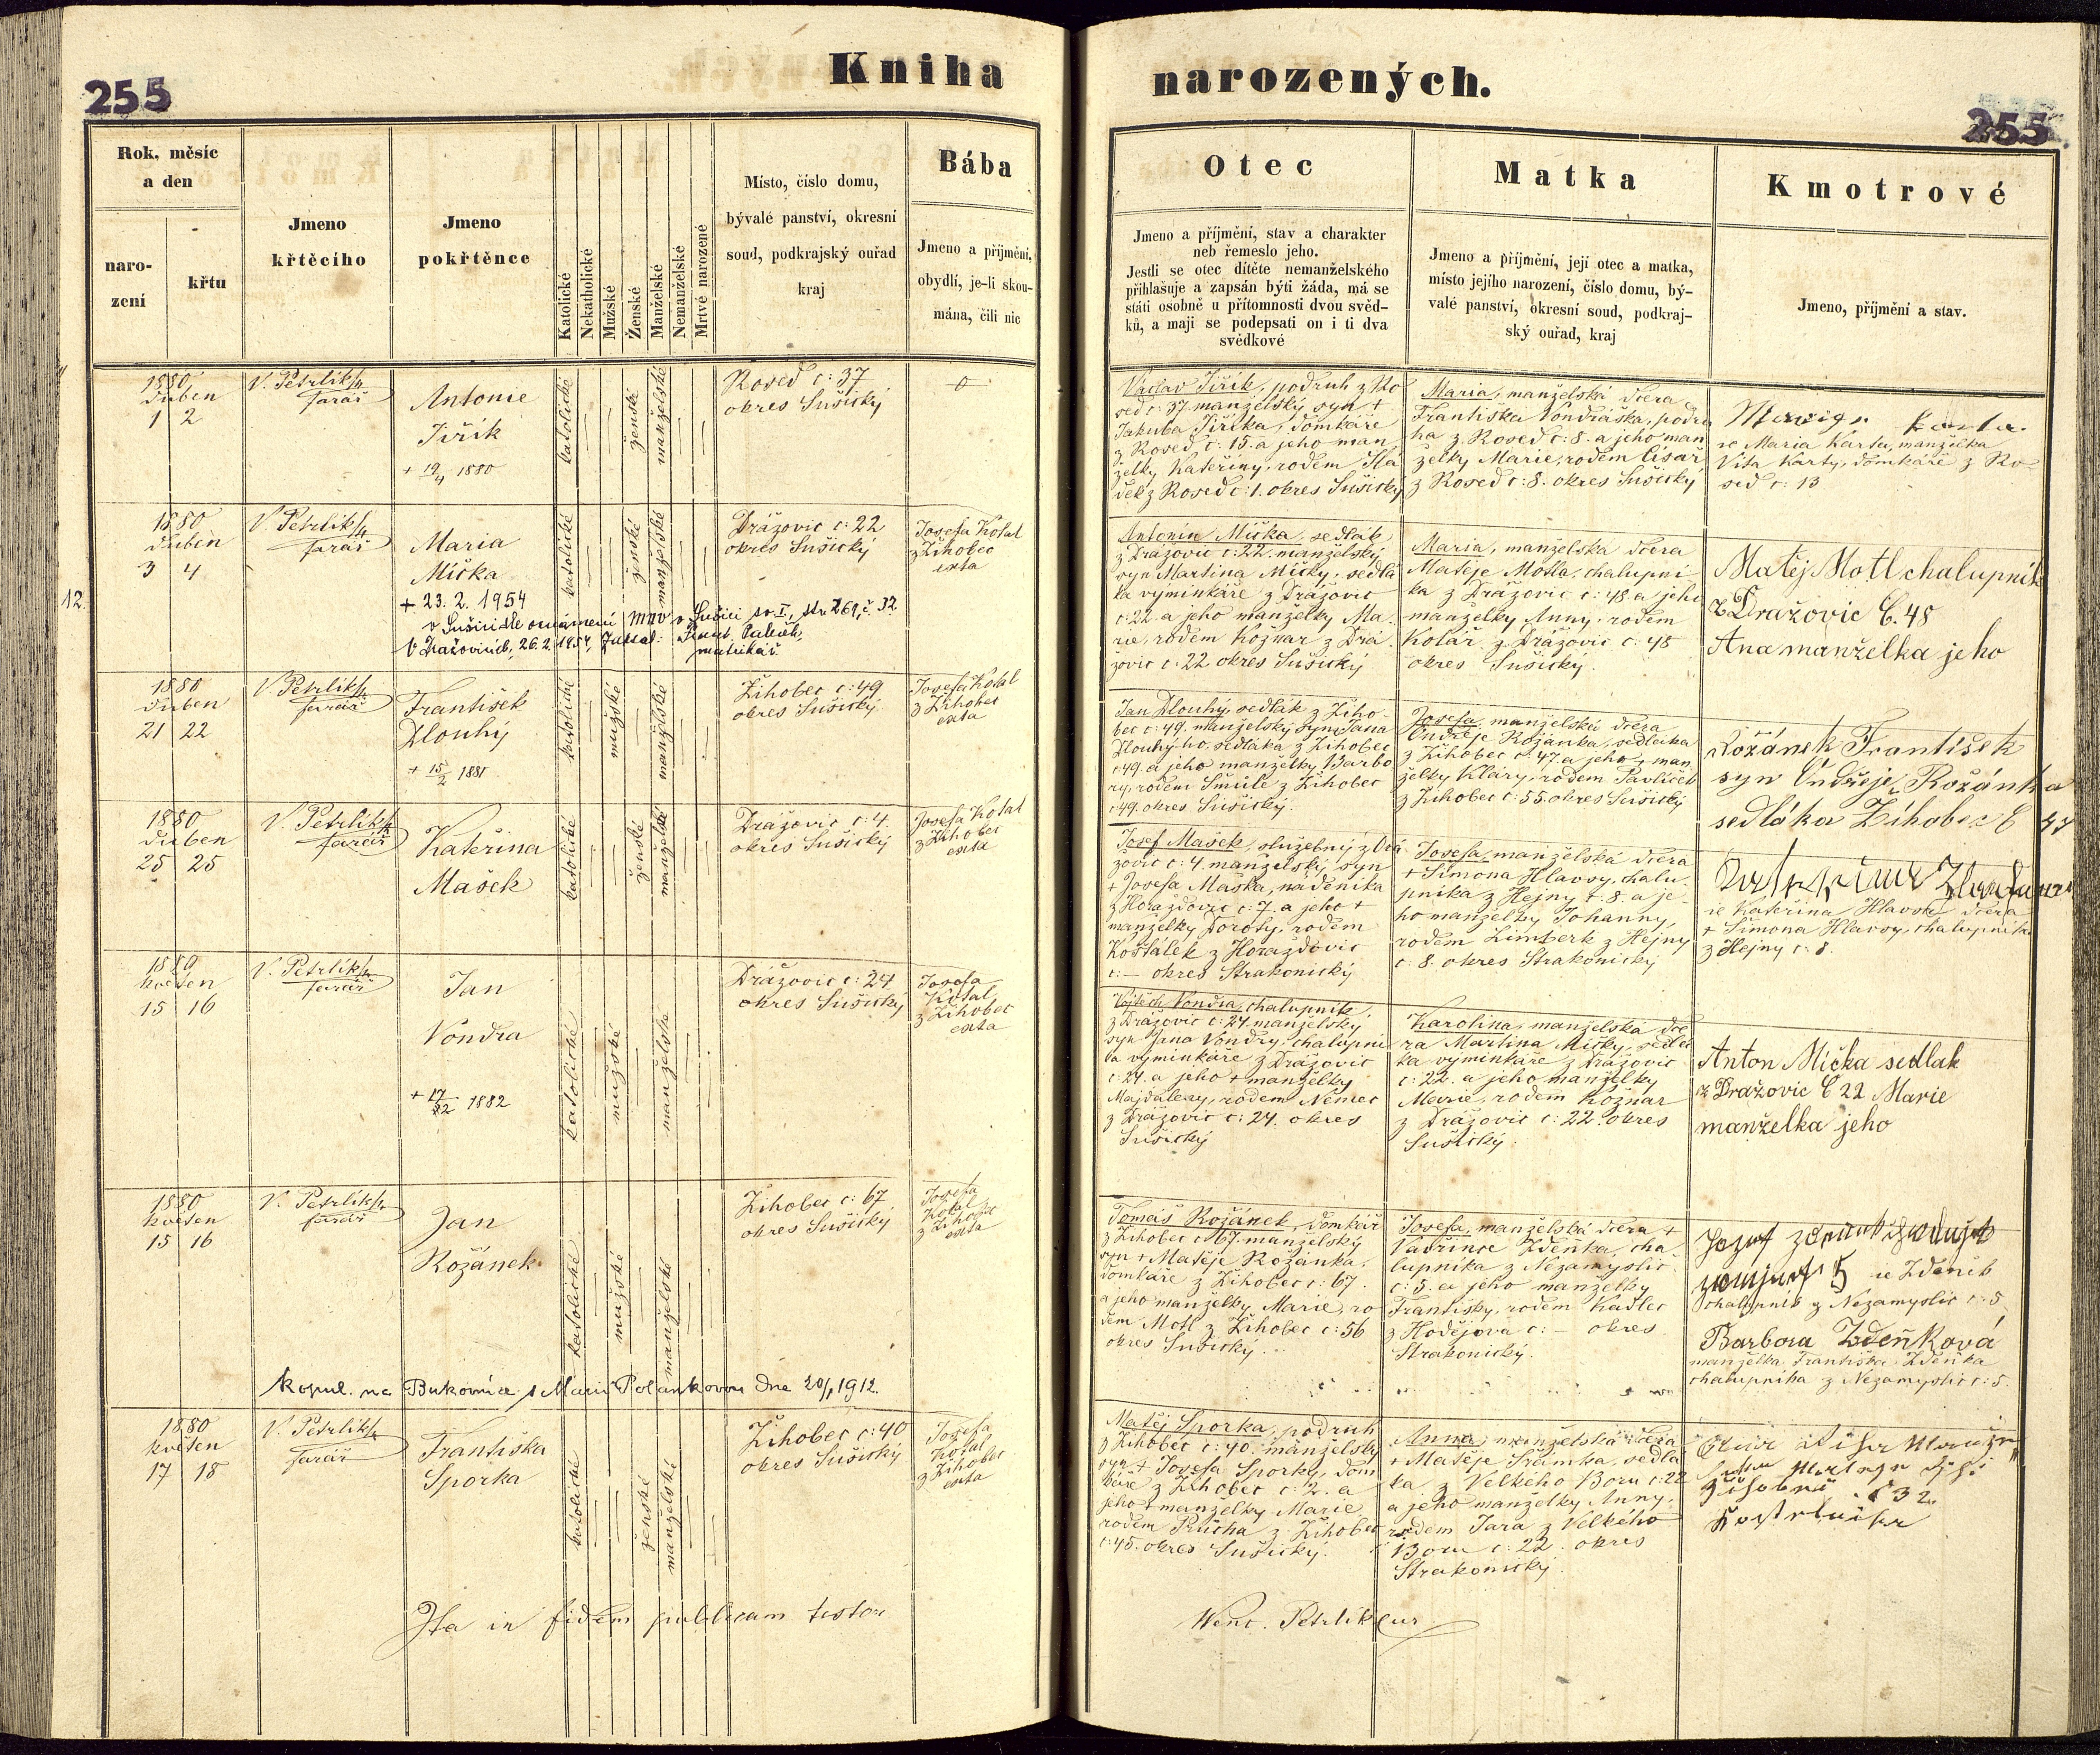 255
Kniha
narozených.
255
Rok, měsíc
a den
naro-
zení
křtu
Jmeno
křtěcího
Jmeno
pokřtěnce
Katolické
Nekatholické
Mužské
Ženské
Manželské
Nemanželské
Mrtvě narozené
Místo, číslo domu,
bývalé panství, okresní
soud, podkrajský ouřad
kraj
Bába
Jmeno a příjmění,
obydlí, je-li skou-
mána, čili nic
Otec
Jmeno a příjmění, stav a charakter
neb řemeslo jeho.
Jestli se otec dítěte nemanželského
přihlašuje a zapsán býti žádá, má se
státi osobně u přítomnosti dvou svěd-
ků, a mají se podepsati on i ti dva
svědkové
Matka
Jmeno a příjmění, její otec a matka,
místo jejího narození, číslo domu, bý-
valé panství, okresní soud, podkraj-
ský ouřad, kraj
Kmotrové
Jmeno, příjmění a stav.
1880
duben
1 2
V. Petrlík
farář
Antonie
Jiřík
+ 19/4 1880
katolické
ženské
manželské
Rosed č: 37
okres Sušický
Václav Jiřík, podruh z Ro
sed č: 37 manželský syn +
Jakuba Jiříka, domkáře
z Rosed č: 15. a jeho man
želky Kateřiny, rodem
z Rosed č: 1. okres Sušický
Maria, manželská dcera
Františka Vondráška, podru
ha z Rosed č: 8. a jeho man
želky Marie, rodem Císař
z Rosed č: 8. okres Sušický
Maria Karta, manželka
Víta Karty, domkáře z Ro
sed č: 13
1880
duben
3 4
V. Petrlík
farář
Maria
Míčka
+ 23. 2. 1954
v Sušici dle oznámení MNV v Sušici sv. I, str. 269, č. 32
V Dražovicích, 26. 2. 1954,
matrikář
12.
katolické
ženské
manželské
Drážovic č: 22
okres Sušický
Josefa Kotal
z Žihobec
exta
Antonín Míčka, sedlák
z Drážovic č: 22. manželský
syn Martina Míčky, sedlá
ka výminkáře z Drážovic
č: 22. a jeho manželky Ma
rie, rodem Kožnar z Drá
žovic č: 22 okres Sušický
Maria, manželská dcera
Matěje Motla, chalupní
ka z Drážovic č: 48. a jeho
manželky Anny, rodem
Kolář z Drážovic č: 48
okres Sušický.
Matěj Motl chalupník
z Dražovic Č. 48
Ana manželka jeho
1880
duben
21 22
V. Petrlík
farář
František
Dlouhý
+ 15/2 1881
katolické
mužské
manželské
Žihobec č: 49
okres Sušický
Josefa Kotal
z Žihobec
exta
Jan Dlouhý, sedlák z Žiho
bec č: 49. manželský syn Jana
Dlouhýho, sedláka z Žihobec
č: 49. a jeho manželky Barbo
ry, rodem z Žihobec
č: 49. okres Sušický.
Josefa, manželská dcera
Ondřeje Rožánka, sedláka
z Žihobec č: 47. a jeho + man
želky Kláry, rodem Pavlíček
z Žihobec č: 55. okres Sušický
Rožánek František
syn Ondřeje Rožánka
sedláka Žihobec Č 47
1880
duben
25 25
V. Petrlík
farář
Kateřina
Mašek
katolické
ženské
manželské
Drážovic č: 4.
okres Sušický
Josefa Kotal
z Žihobec
exta
Josef Mašek, služebný z Drá
žovic č: 4. manželský syn
+ Josefa Maška, nádeníka
z Horažďovic č: 7. a jeho +
manželky Doroty, rodem
Košťálek z Horažďovic
č: — okres Strakonický
Josefa, manželská dcera
+ Šimona Hlavsy, chalu
pníka z Hejny č: 8. a je
ho manželky Johanny,
rodem Limberk z Hejny
č: 8. okres Strakonický
Kateřina Hlavsa dcera
+ Šimona Hlavsy, chalupníka
z Hejny č: 8.
1880
květen
15 16
V. Petrlík
farář
Jan
Vondra
+ 17/12 1882
katolické
mužské
manželské
Drážovic č: 24
okres Sušický
Josefa
Kotal
z Žihobec
exta
Vojtěch Vondra, chalupník
z Drážovic č: 24. manželský
syn Jana Vondry, chalupní
ka výminkáře z Drážovic
č: 24. a jeho + manželky
Majdaleny, rodem Němec
z Drážovic č: 24. okres
Sušický
Karolina, manželská dce
ra Martina Míčky, sedlá
ka výminkáře z Drážovic
č: 22. a jeho manželky
Marie, rodem Kožnar
z Drážovic č: 22. okres
Sušický.
Anton Míčka sedlak
z Dražovic Č 22 Marie
manželka jeho
1880
květen
15 16
V. Petrlík
farář
Jan
Rožánek
katolické
mužské
manželské
Žihobec č: 67
okres Sušický
Josefa
Kotal
z Žihobec
exta
Tomáš Rožánek, domkář
z Žihobec č: 67. manželský
syn + Matěje Rožánka,
domkáře z Žihobec č: 67.
a jeho manželky Marie, ro
dem Motl z Žihobec č: 56
okres Sušický.
Josefa, manželská dcera +
Vavřince Zdeňka, cha
lupníka z Nezamyslic
č: 5. a jeho manželky
Františky, rodem Kadlec
z Hodějova č: — okres
Strakonický.
Zdeněk
chalupník z Nezamyslic č: 5
Barbora Zdeňková
manželka Františka Zdeňka
chalupníka z Nezamyslic č: 5.
kopul. na Bukovníce s Marií Polankovou dne 1912.
1880
květen
17 18
V. Petrlík
farář
Františka
Sporka
katolické
ženské
manželské
Žihobec č: 40
okres Sušický
Josefa
Kotal
z Žihobec
exta
Matěj Sporka, podruh
z Žihobec č: 40. manželský
syn + Josefa Sporky, dom
káře z Žihobec č: 2. a
jeho + manželky Marie
rodem Průcha z Žihobec
č: 45. okres Sušický.
Anna, manželská dcera
+ Matěje Šrámka, sedlá
ka z Velkého Boru č: 22
a jeho manželky Anny,
rodem Jara z Velkého
Boru č: 22. okres
Strakonický.
Ita in fidem publicam testor
Wenc. Petrlík Cur